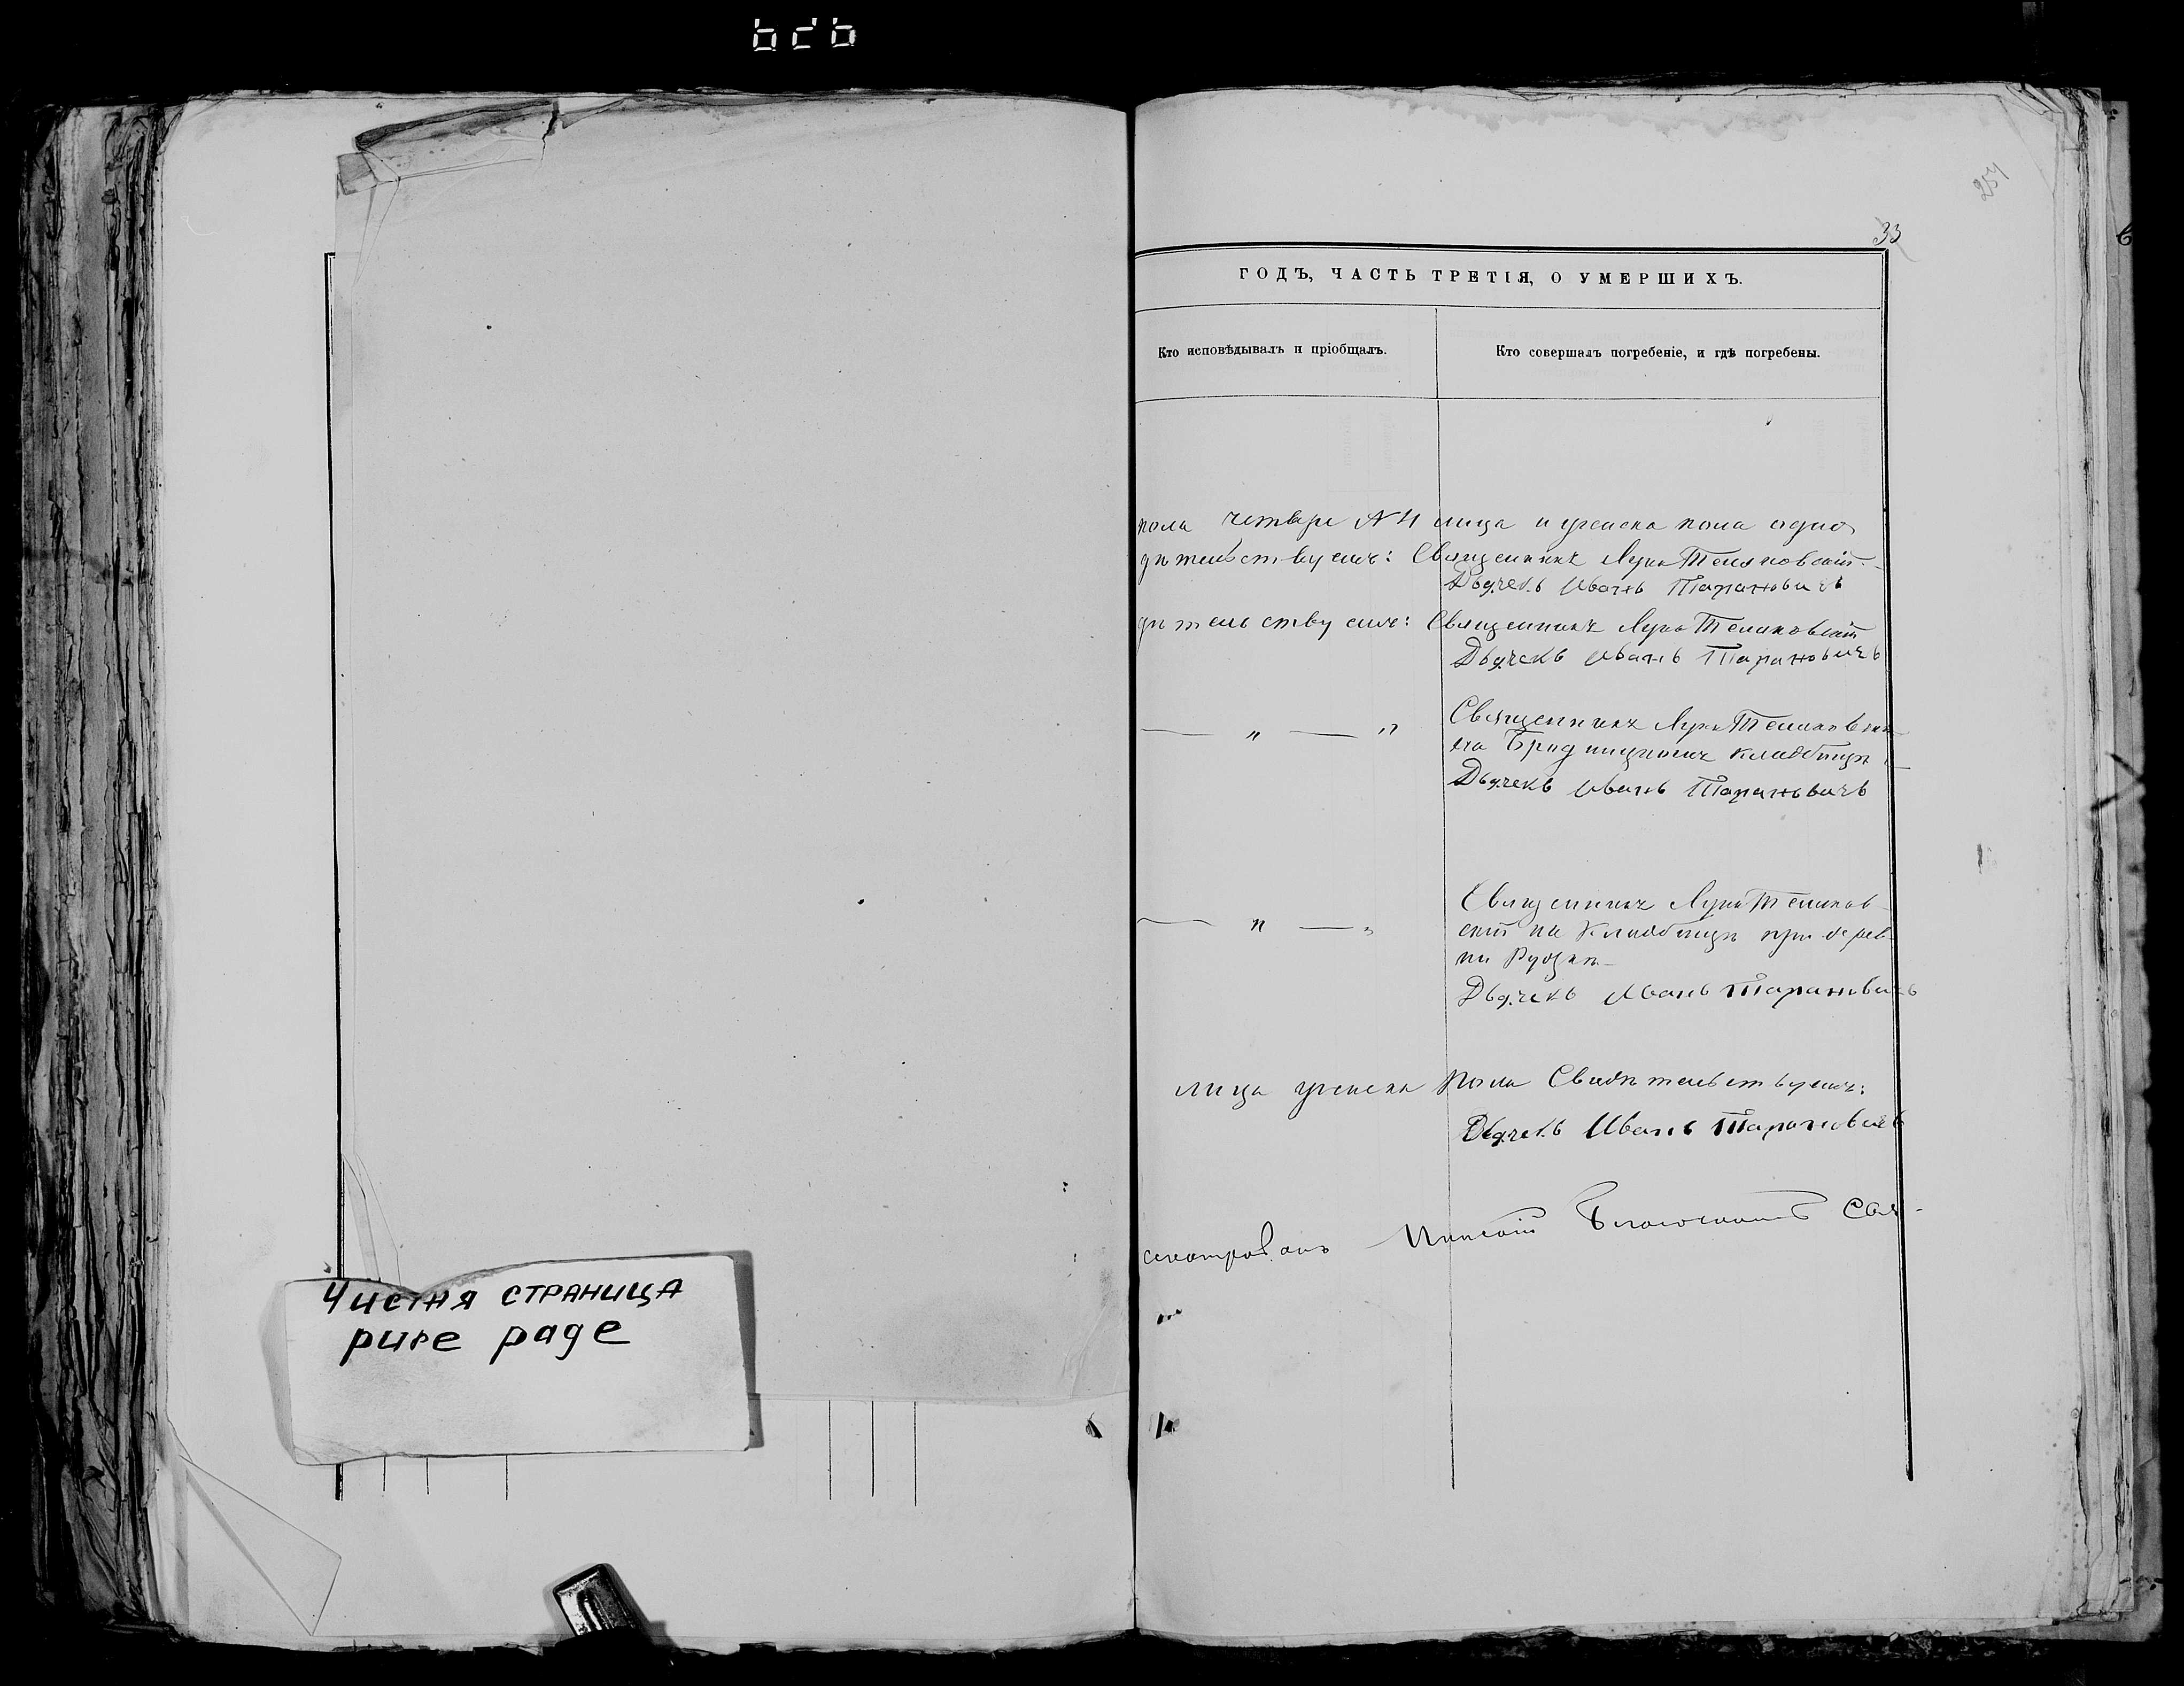 257
33
ГОДЪ, ЧАСТЬ ТРЕТІЯ, О УМЕРШИХЪ.
Кто исповѣдывалъ и пріобщалъ.
Кто совершалъ погребеніе, и гдѣ погребены.
пола четыре №4 лица и женска пола одно
дѣтельствуемъ: Священникъ Лука
Дьячекъ Иванъ Тарановичъ
дѣтельствуемъ: Священникъ Лука
Дьячекъ Иванъ Тарановичъ
— „ — „
Священникъ Лука
на кладбищѣ
Дьячекъ Иванъ Тарановичъ
— „ — „
Священникъ Лука
скій на Кладбищѣ при дерев-
ни
Дьячекъ Иванъ Тарановичъ
лица женска пола Свидѣтельствуемъ:
Дьячекъ Иванъ Тарановичъ
Пинскій Благочинный Свя-
Чистая страница
pure page